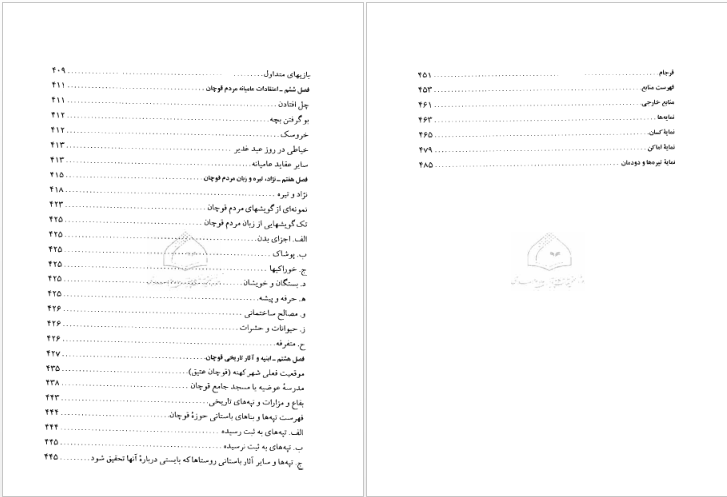 بازیهای متداول ........ ۴۰۹
فصل ششم ـ اعتقادات عامیانه مردم قوچان ........ ۴۱۱
چل افتادن ........ ۴۱۱
بو گرفتن بچه ........ ۴۱۲
خروسک ........ ۴۱۲
خیاطی در روز عید غدیر ........ ۴۱۳
سایر عقاید عامیانه ........ ۴۱۳
فصل هفتم ـ نژاد، تیره و زبان مردم قوچان ........ ۴۱۵
نژاد و تیره ........ ۴۱۸
نمونه‌ای از گویشهای مردم قوچان ........ ۴۲۳
تک گویشهایی از زبان مردم قوچان ........ ۴۲۵
الف. اجزای بدن ........ ۴۲۵
ب. پوشاک ........ ۴۲۵
ج. خوراکیها ........ ۴۲۵
د. بستگان و خویشان ........ ۴۲۵
ه‍. حرفه و پیشه ........ ۴۲۵
و. مصالح ساختمانی ........ ۴۲۶
ز. حیوانات و حشرات ........ ۴۲۶
ح. متفرقه ........ ۴۲۶
فصل هشتم ـ ابنیه و آثار تاریخی قوچان ........ ۴۲۷
موقعیت فعلی شهر کهنه (قوچان عتیق) ........ ۴۳۵
مدرسهٔ عوضیه یا مسجد جامع قوچان ........ ۴۳۸
بقاع و مزارات و تپه‌های تاریخی ........ ۴۴۳
فهرست تپه‌ها و بناهای باستانی حوزهٔ قوچان ........ ۴۴۴
الف. تپه‌های به ثبت رسیده ........ ۴۴۴
ب. تپه‌های به ثبت نرسیده ........ ۴۴۵
ج. تپه‌ها و سایر آثار باستانی روستاها که بایستی دربارهٔ آنها تحقیق شود ........ ۴۴۵
فرجام ........ ۴۵۱
فهرست منابع ........ ۴۵۳
منابع خارجی ........ ۴۶۱
نمایه‌ها ........ ۴۶۳
نمایهٔ کسان ........ ۴۶۵
نمایهٔ اماکن ........ ۴۷۹
نمایهٔ تیره‌ها و دودمان ........ ۴۸۵